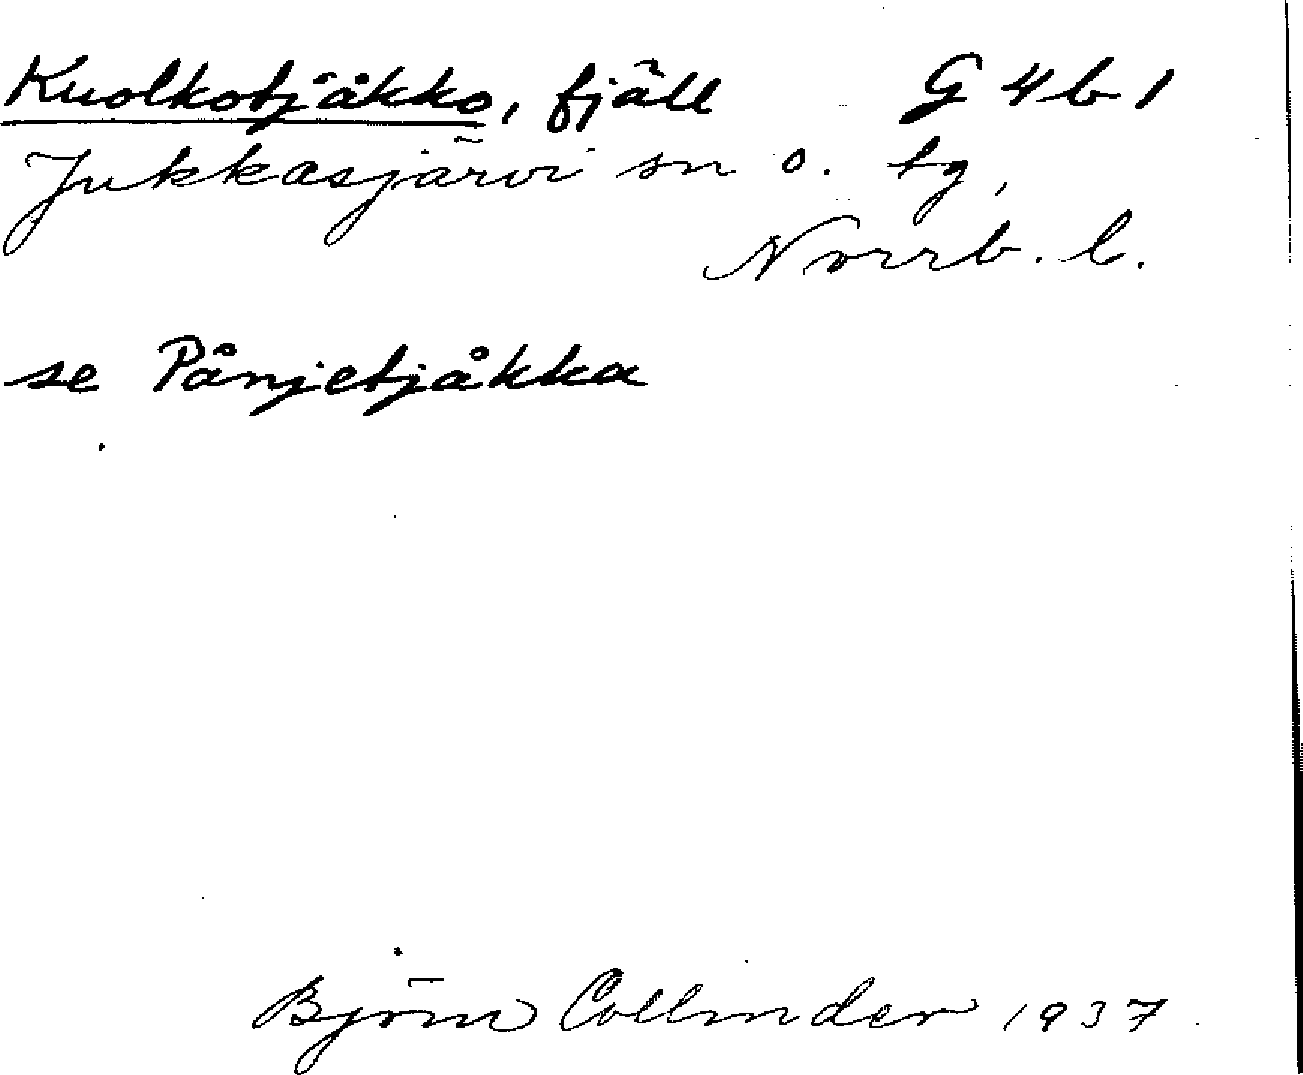 Kuolkotjåkko, fjäll G 4 b 1
Jukkasjärvi sn o. tg,
Norrb. l.
se Pånjetjåkka
Björn Collinder 1937